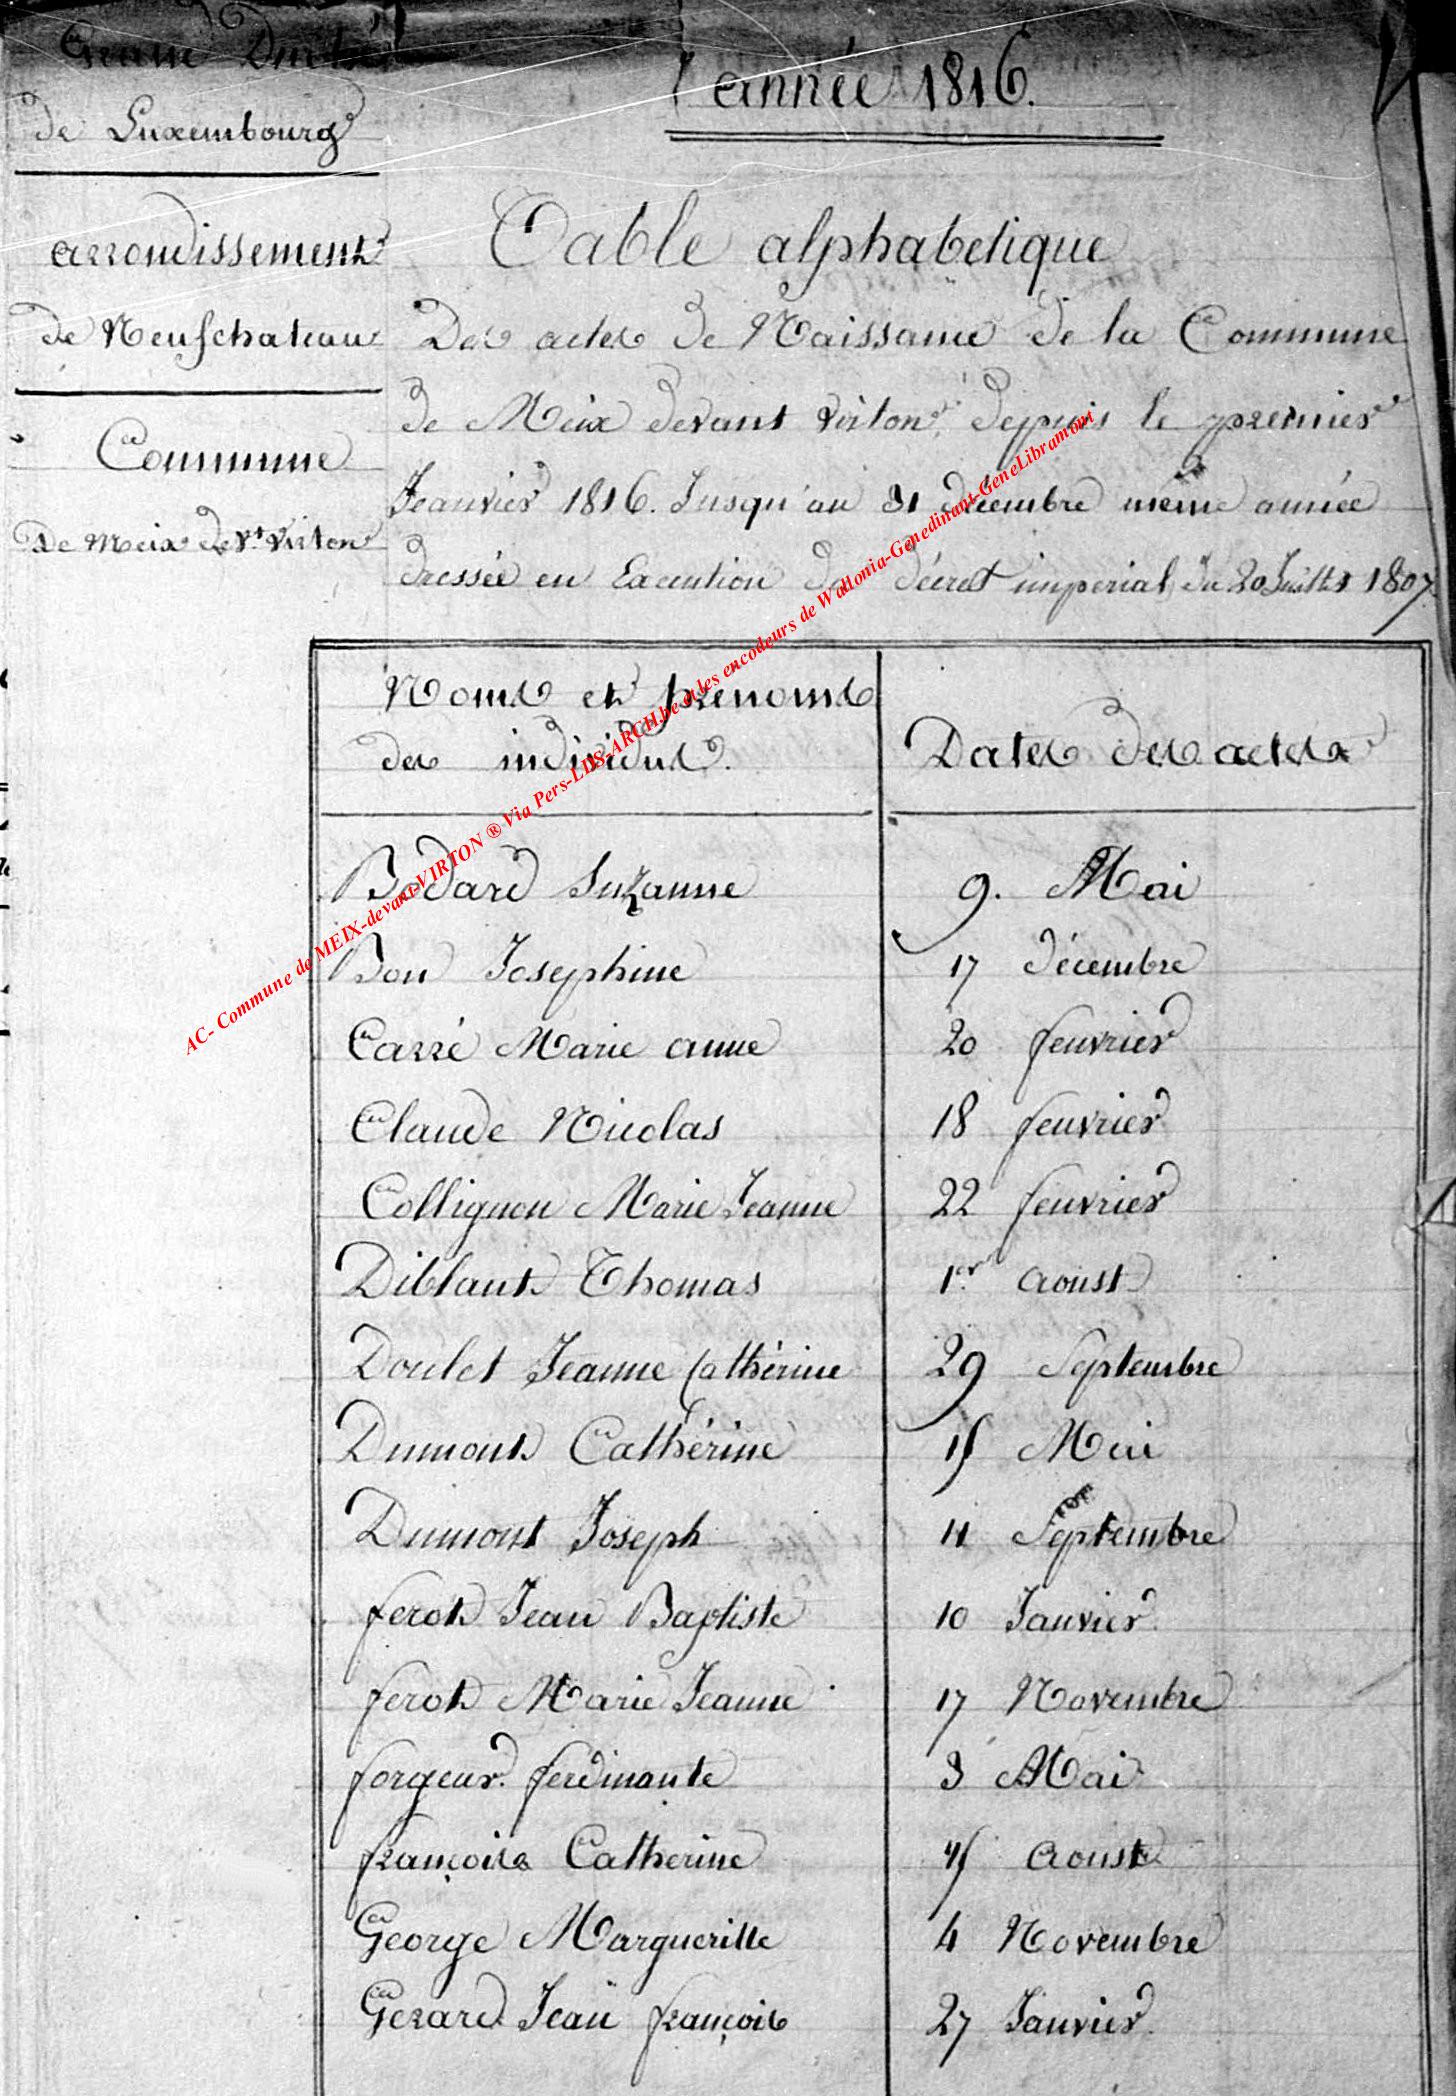 Grand Duché
de Luxembourg
arrondissement
de Neufchateau
Commune
de Meix devt. Virton
année 1816.
Table alphabetique
Des actes de Naissance de la Commune
de Meix devant Virton, depuis le premier
Jeanvier 1816. Jusqu'au 31 décembre même année
dressée en Execution du décret imperial du 20 Juillet 1807.
Noms et prenoms
des individus.
Dates des actes
Bodard Suzanne 9. Mai
Bon Josephine 17 décembre
Carré Marie anne 20 feuvrier
Claude Nicolas 18 feuvrier
Collignon Marie Jeanne 22 feuvrier
Diblant Thomas 1er. aoust
Doulet Jeanne Cathérine 29 Septembre
Dumont Cathérine 15 Mai
Dumont Joseph 11 Septembre
ferot Jean Baptiste 10 Janvier
ferot Marie Jeanne 17 Novembre
forgeur. ferdinante 3 Mai
françois Catherine aoust
George Margueritte 4 Novembre
Gerard Jean françois 27 Janvier
AC- Commune de MEIX-devant-VIRTON ® Via Pers-LDS-ARCH.be et les encodeurs de Wallonia-Genedinant-GeneLibramont